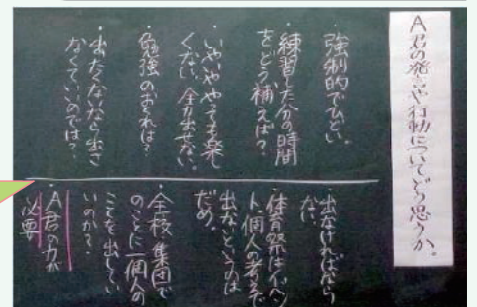 A君の発言や行動についてどう思うか。
・強制的でひどい。
・練習した分の時間
をどう補えば？
・いやいややっても楽し
くない、全力出せない。
・勉強のおくれは？
・出たくないなら出さ
なくていいのでは？
・出なければならな
い。
・体育祭はイベン
ト、個人の考えで
出ないというのは
だめ。
・全校・集団で
のことに一個人の
ことを出していい
のか？
・A君の力が
必要